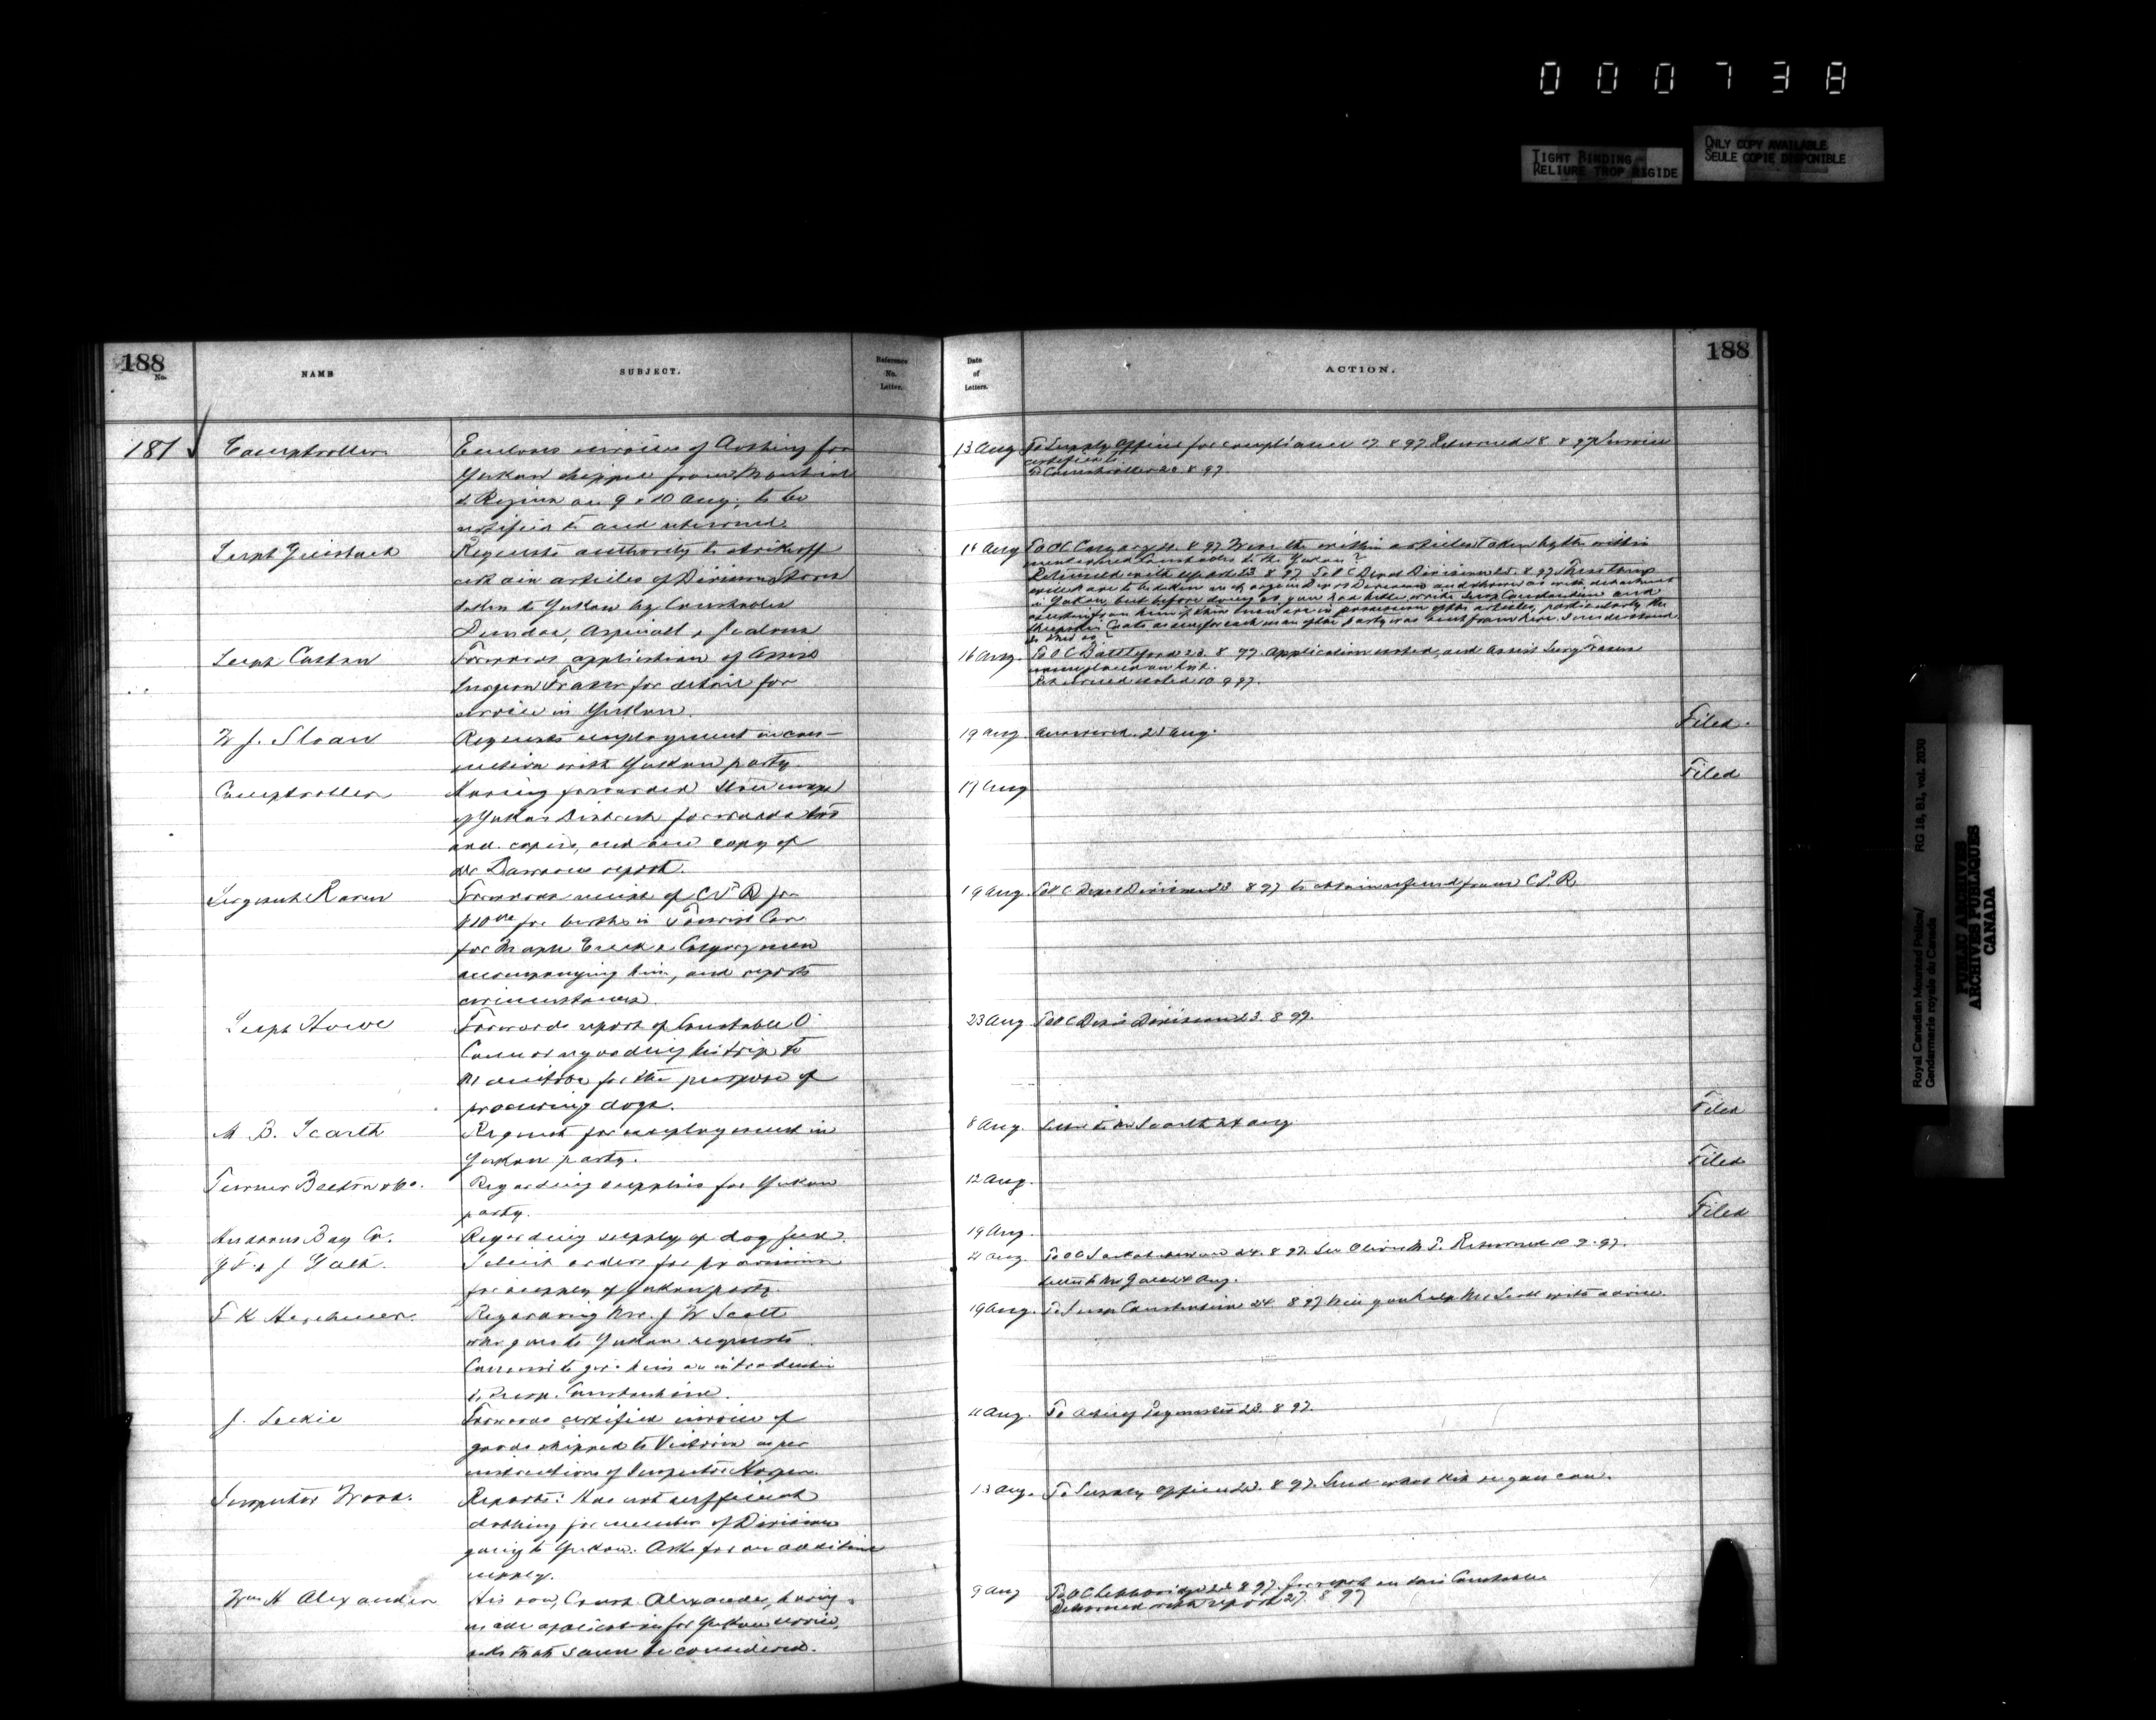 000738
TIGHT BINDING
RELIURE TROP RIGIDE
ONLY COPY AVAILABLE
SEULE COPIE DISPONIBLE
188
No.
NAME
SUBJECT.
Reference
No.
Letter.
Date
of
Letters.
ACTION.
188
187
Comptroller
Encloses invoices of Clothing for
Yukon shipped from Montreal
to Regina on 9 & 10 Aug, to be
certified to and returned.
13 Aug
To Supply Officer for compliance 17.8.97 Returned 18.8.97 Invoices
certified to.
To Comptroller 20.8.97
Requests authority to strike off
certain articles of Division Stores
taken to Yukon by Constables
Dundas, Aspinall &
To OC Calgary 8 97 Were the within articles taken by the within
mentioned Constables to the Yukon?
Returned with report 23.8.97 To OC Depot Division 25.8.97 These
are to be taken on charge in Depot Division and shown as with detachment
in Yukon, but before doing so you had better write Insp Constantine and
Forwards application of Assist
Surgeon Fraser for detail for
service in Yukon.
16 Aug.
To OC Battleford 23.8.97 Application noted, and Assist Surg Fraser
name placed on list.
Returned noted 10 9 97.
W J. Sloan
Requests employment in con-
nection with Yukon party.
19 Aug.
Answered. 25 Aug.
Filed.
Comptroller
Having forwarded three maps
of Yukon District forwards two
and copies, and one copy of
Dr Dawson report.
17 Aug
Filed
Sergeant Raven
Forwards receipt of CPR for
$10 for berths in Tourist Car
for Maple Creek & Calgary men
accompanying him, and reports
circumstances.
19 Aug.
To OC Depot Division 23 8 97 to obtain refund from C.P.R.
Supt Howe
Forwards report of Constable O'
Connor regarding his trip to
Manitoba for the purpose of
procuring dogs.
23 Aug
To OC Depot Division 23.8.97.
M B. Scarth
Request for employment in
Yukon party.
8 Aug.
Letter to Mr Scarth 24 Aug
Filed
Turner Beeton & Co.
Regarding supplies for Yukon
party.
12 Aug.
Filed
Hudsons Bay Co.
Regarding supply of dog feed.
19 Aug.
Filed
G F. & J Galt.
Solicit orders for provisions
for supply of Yukon party.
21 Aug.
To OC 24.8.97. Returned 10.9.97.
Letter to Mr Galt Aug.
Regarding Mr. J W Scott
who goes to Yukon requests
Commr to give him an introduction
to Insp. Constantine.
19 Aug.
To Insp Constantine 24 8 97 Will you help Mr Scott with advice.
J. Leckie
Forwards certified invoice of
goods shipped to Victoria as per
instructions of Inspector Harper.
11 Aug.
To Acting Paymaster 23.8.97.
Inspector Wood.
Reports: Has not sufficient
clothing for member of Division
going to Yukon. Asks for an additional
supply.
13 Aug.
To Supply Officer 23.8.97. Send what kit you can.
Wm H Alexander
His son, Const. Alexander, having
made application for Yukon service,
asks that same be considered.
9 Aug
To OC Lethbridge 23 8 97. for report on this Constable
Returned with report 27.8.97
Royal Canadian Mounted Police/
Gendarmerie royale du Canada
RG 18, B1, vol. 2030
PUBLIC ARCHIVES
ARCHIVES PUBLIQUES
CANADA